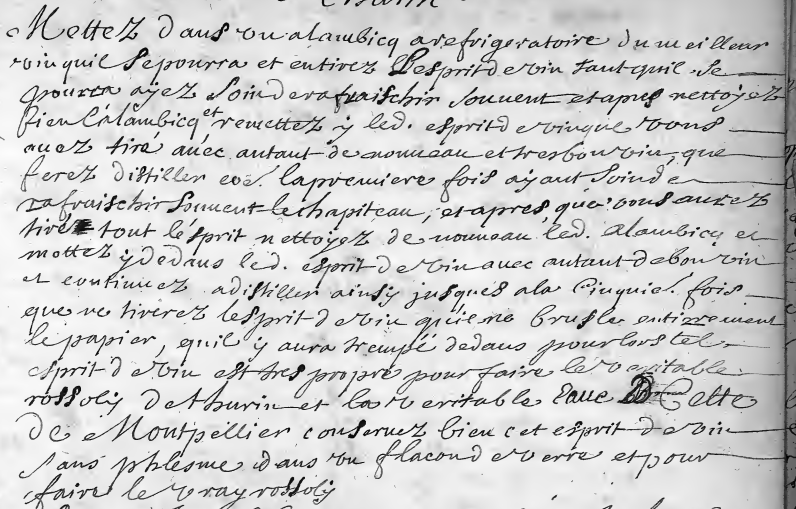 Mettez dans un alambicq a refrigeratoire du meilleur
vin quil se pourra et en tirez l'esprit de vin tant quil se
pourra ayez soin de rafraischir souvent et apres nettoyez
bien l'alambicq et remettez y led. esprit de vin que vous
avez tiré avec autant de nouveau et tres bon vin, que
ferez distiller coe. la premiere fois ayant soin de
rafraischir souvent le chapiteau, et apres que vous aurez
tiré tout l'esprit nettoyez de nouveau led. alambicq et
mettez y dedans led. esprit de vin avec autant de bon vin
et continuez a distiller ainsy jusques a la cinquie. fois
que ne tirerez l'esprit de vin qu'il ne brusle entirement
le papier, quil y aura trempé dedans pour lors tel
esprit de vin est tres propre pour faire le veritable
rossoly de thurin et la veritable eaue D Cette
de Montpellier conservez bien cet esprit de vin
sans phlesme dans un flacon de verre et pour
faire le vray rossoly